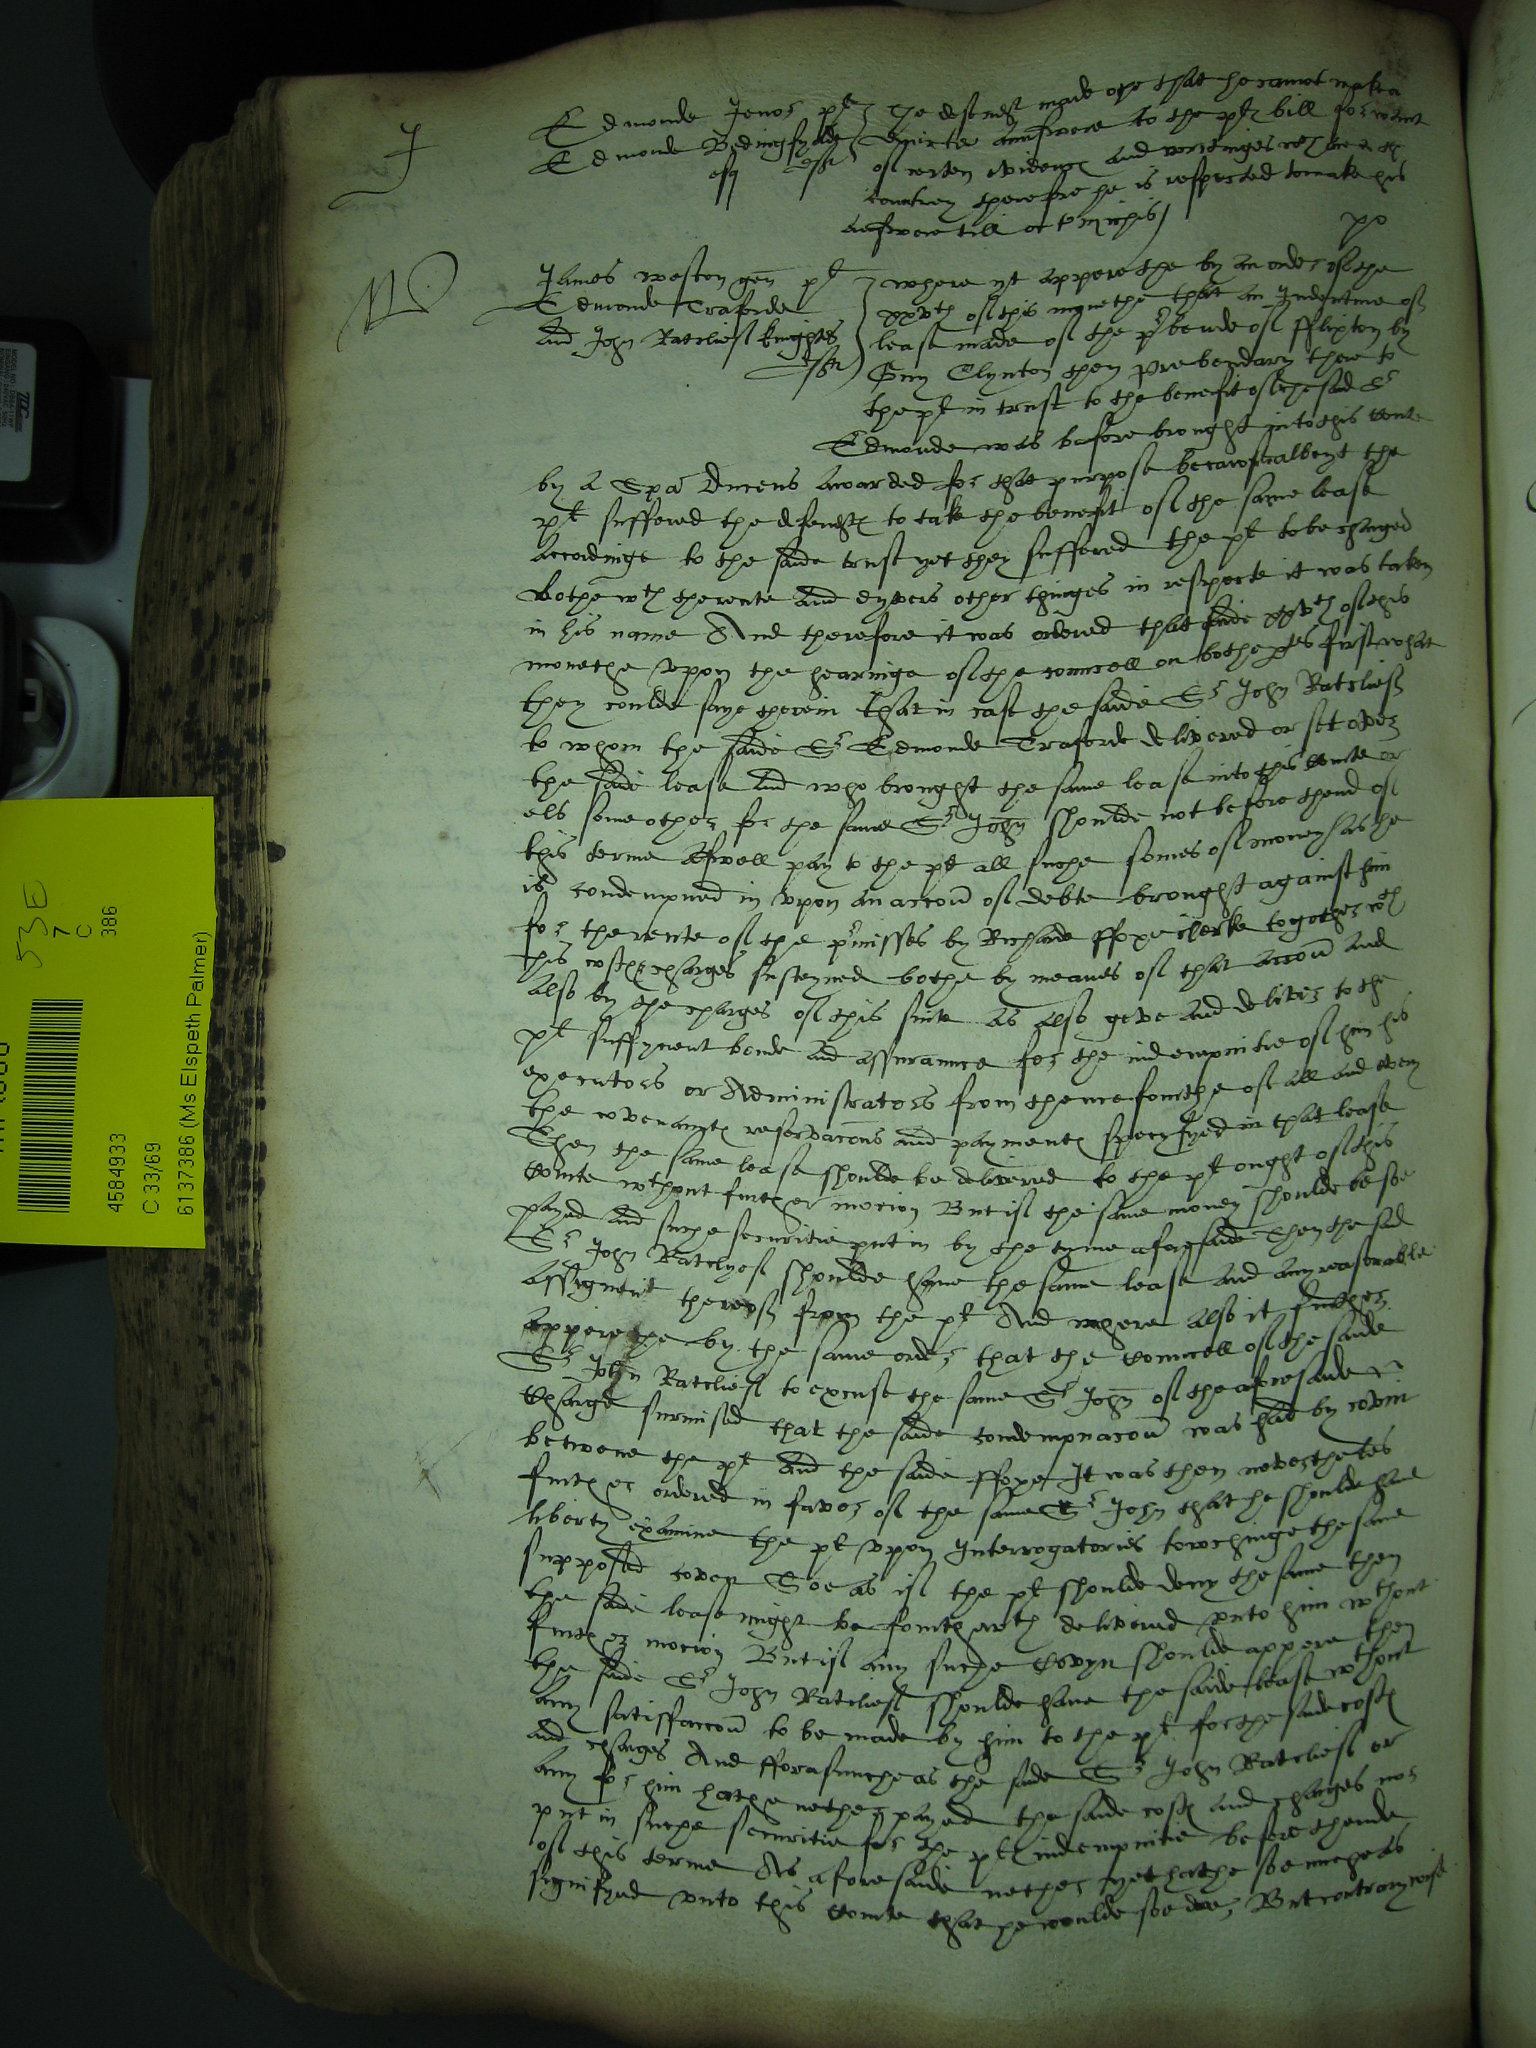 J
Edmonde Jenor plt The defendt made othe that he cannot make a
Edmonde Bedingfylde directe annswere to the pltes bill for want
esq deft of certen evidences and wrytinges wch are in the
countrey therefore he is respected to make his
answere till oct Michis
po
James Weston gen plt where yt apperethe by an order of the
Edmonde Traforde xxvth of this monethe that an Indenture of
and John Ratclief knightes lease made of the prbende of fflixton by
deftes Guy Clynton then prebendary there to
the plt in trust to the benefit of the said Sr
Edmonde was before brought into this Courte
by a Spa Ducens awarded for that purpose because albeyt the
plt suffered the defendtes to take the benefit of the same lease
accordinge to the saide trust yet they suffered the plt to be charged
bothe wth the rente and dyvers other thinges in respecte it was taken
in his name And therefore it was ordered that saide xxvth of this
monethe vpon the hearinge of the councell on bothe ptes first what
they coulde saye therein that in case the saide Sr John Ratclieff
to whom the saide Sr Edmonde Traforde delivered or set over
the saide lease and who brought the same lease into this Courte or
els some other for the same Sr John shoulde not before thend of
this terme aswell pay to the plt all suche somes of money as he
is condempned in vpon an accon of debte brought against him
for the rente of the prmisses by Richarde ffoxe clerke together wth
his costes & charges susteyned bothe by meanes of that accon and
also by the charges of this suite as also geve and deliver to the
plt suffycient bonde and assuraunce for the indempnitie of him his
executors or Administrators from thencefourthe of all and every
the covenantes reservacons and paymentes specyfyed in that lease
Then the same lease shoulde be delivered to the plt ought of this
Courte wthout further mocion But if the same money shoulde be soe
payed and suche securitie put in by the tyme aforesaide Then the said
Sr John Ratclyef shoulde have the same lease and any reasonable
assignemt thereof from the plt And where also it further
apperethe by the same order that the Councell of the saide
Sr John Ratclief to excuse the same Sr John of the aforesaide
Charge surmised that the saide condempnacon was had by covin
betwene the plt and the saide ffoxe It was then nevertheles
further ordered in favor of the same Sr John that he shoulde have
liberty examine the plt vpon Interrogatories towchinge the same
supposed coven Soe as if the plt shoulde deny the same then
the saide lease might be fourthwth delivered vnto him wthout
further mocion But if any suche Covyn shoulde appere then
the saide Sr John Ratclief shoulde have the saide lease wthout
any satisfaccon to be made by him to the plt for the saide costes
and charges And fforasmuche as the saide Sr John Ratclief or
any for him hathe nether payed the saide costes and charges nor
put in suche securitie for the pltes indempnitie before thende
of this terme As aforesaide nether yet hathe soe muche as
signifyed vnto this Courte that he woulde soe doe, But contrarywise
53E
7
C
386
4584933
C 33/69
6137386 (Ms Elspeth Palmer)